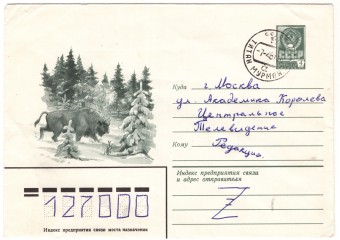 СССР
Куда г. Москва
ул. Академика Королева
Центральное
Телевидение
Кому Редакция.
Индекс предприятия связи
и адрес отправителя
127000
Индекс предприятия связи места назначения